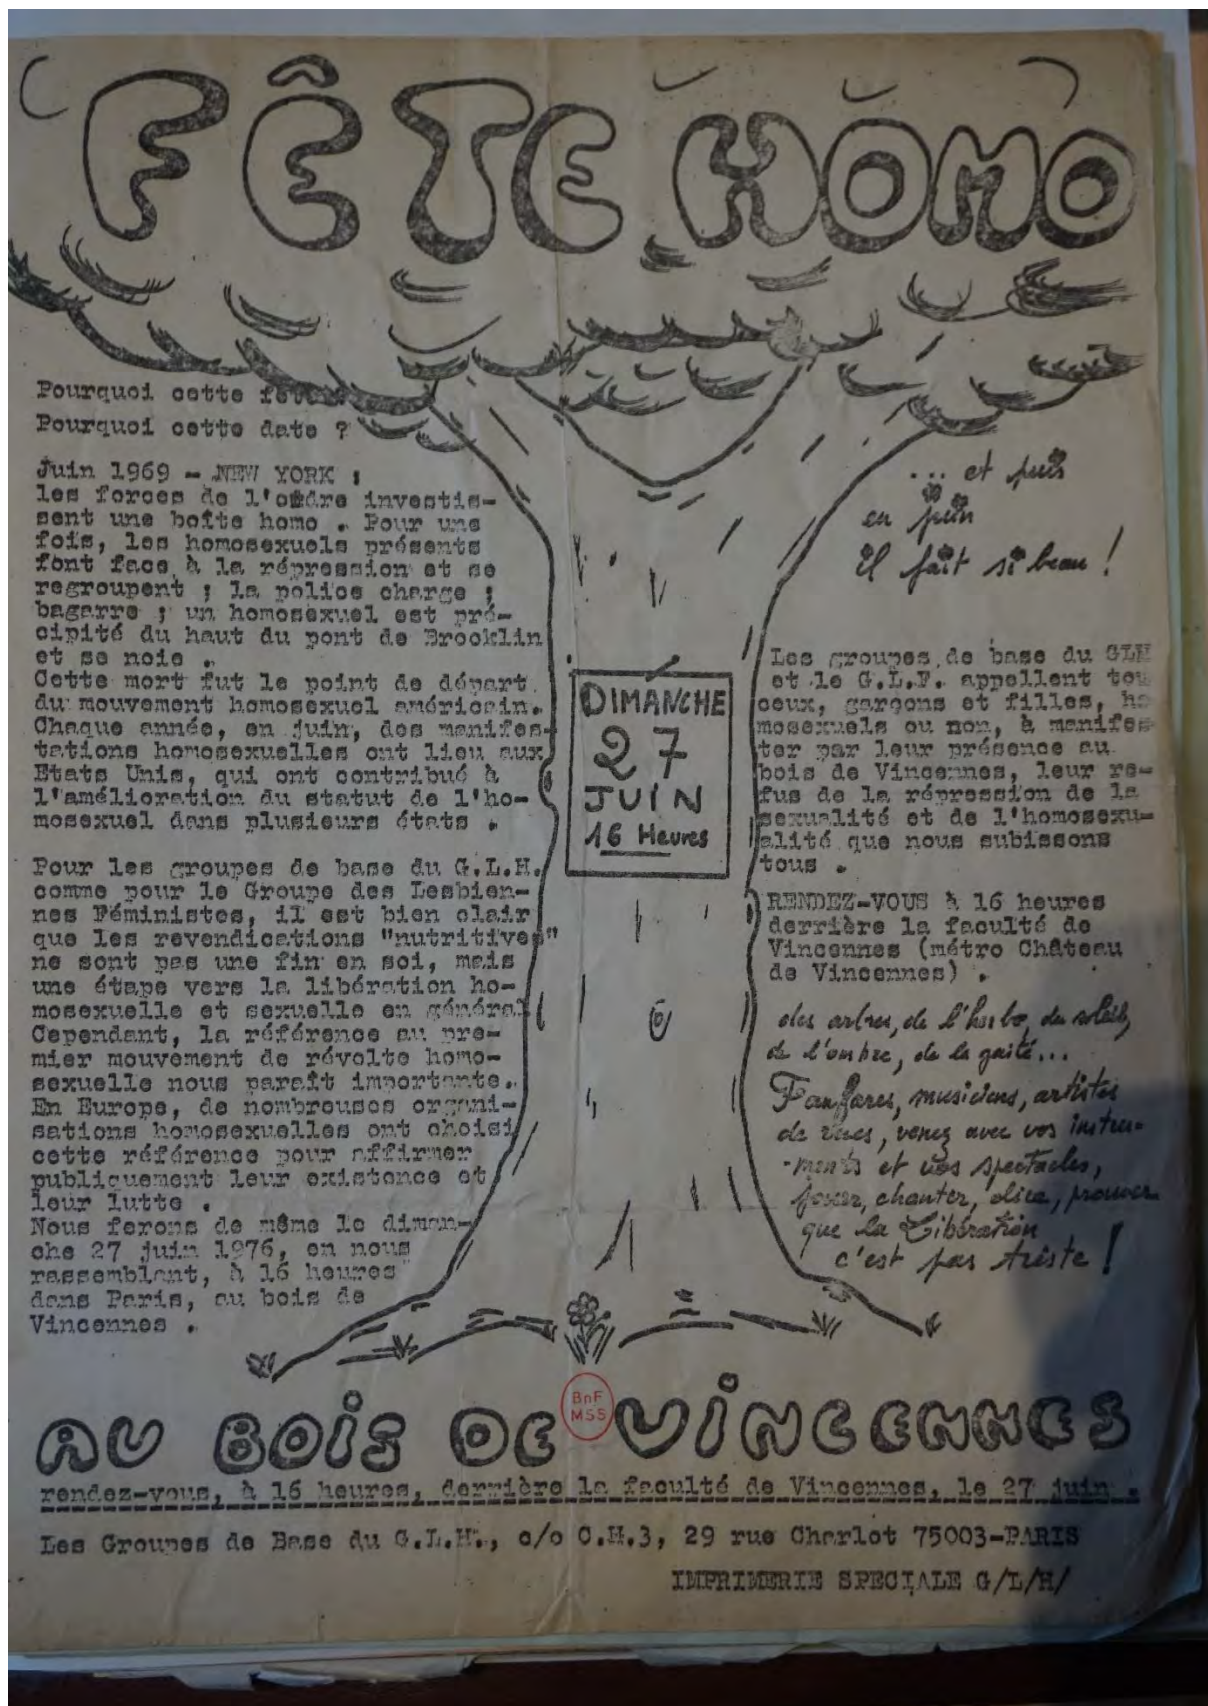 FÊTE HOMO
Pourquoi cette
Pourquoi cette date ?
Juin 1969 - NEW YORK :
les forces de l'ordre investis-
sent une boîte homo . Pour une
fois, les homosexuels présents
font face à la répression et se
regroupent ; la police charge ;
bagarre ; un homosexuel est pré-
cipité du haut du pont de Brocklin
et se noie .
Cette mort fut le point de départ
du mouvement homosexuel américain.
Chaque année, en juin, des manifes-
tations homosexuelles ont lieu aux
Etats Unis, qui ont contribué à
l'amélioration du statut de l'ho-
mosexuel dans plusieurs états .
Pour les groupes de base du G.L.H.
comme pour le Groupe des Lesbien-
nes Féministes, il est bien clair
que les revendications "nutritives"
ne sont pas une fin en soi, mais
une étape vers la libération ho-
mosexuelle et sexuelle en général
Cependant, la référence au pre-
mier mouvement de révolte homo-
sexuelle nous paraît importante.
En Europe, de nombreuses organi-
sations homosexuelles ont choisi
cette référence pour affirmer
publiquement leur existence et
leur lutte .
Nous ferons de même le diman-
che 27 juin 1976, en nous
rassemblant, à 16 heures
dans Paris, au bois de
Vincennes .
DIMANCHE
27
JUIN
16 Heures
... et puis
en juin
il fait si beau !
Les groupes de base du GLH
et le G.L.F. appellent tou
ceux, garçons et filles, ho
mosexuels ou non, à manifes-
ter par leur présence au
bois de Vincennes, leur re-
fus de la répression de la
sexualité et de l'homosexu-
alité que nous subissons
tous .
RENDEZ-VOUS à 16 heures
derrière la faculté de
Vincennes (métro Château
de Vincennes) .
des arbres, de l'herbe, du soleil,
de l'ombre, de la gaité...
Fanfares, musiciens, artistes
de rues, venez avec vos instru-
-ments et vos spectacles,
jouer, chanter, dire, prouver
que la Libération
c'est pas triste !
BnF
MSS
AU BOIS DE VINCENNES
rendez-vous, à 16 heures, derrière la faculté de Vincennes, le 27 juin .
Les Groupes de Base du G.L.H., c/o C.H.3, 29 rue Charlot 75003-PARIS
IMPRIMERIE SPECIALE G/L/H/